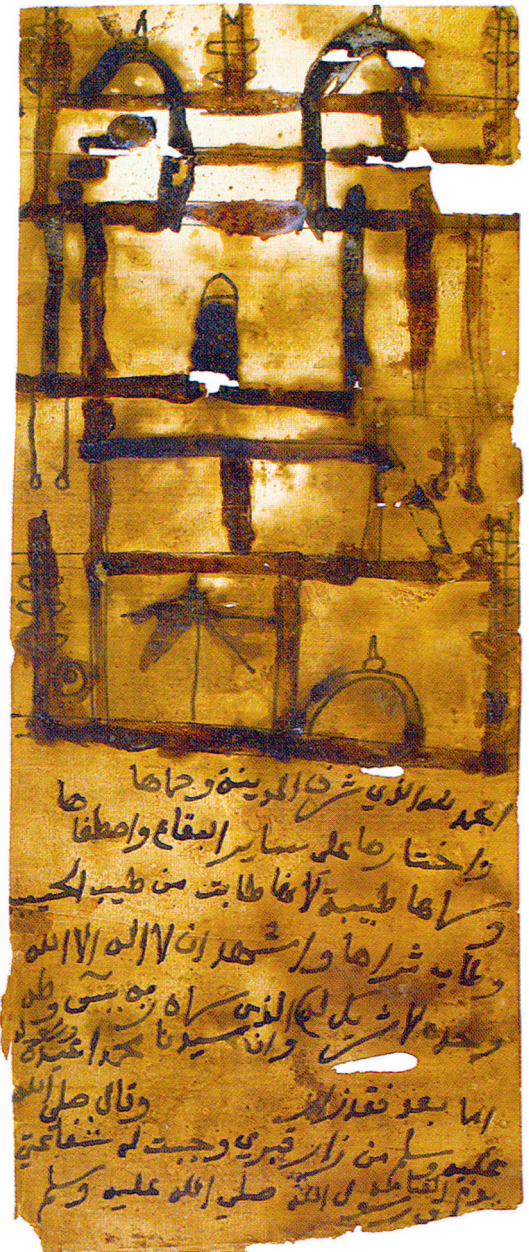 الحمد لله الذي شرف المدينة وحماها
واختارها على ساير البقاع واصطفا ها
وسماها طيبة لانها طابت من طيب الحبيب
وطاب ثراها واشهد ان لا اله الا الله
وحده لا شريك له الذي سماه ربه يسى وطه
وان سيدنا محمدا عبده ورسوله
اما بعد فقد زار وقال صلى الله
عليه وسلم من زار قبري وجبت له شفاعتي
يوم القيامة رسول الله صلى الله عليه وسلم